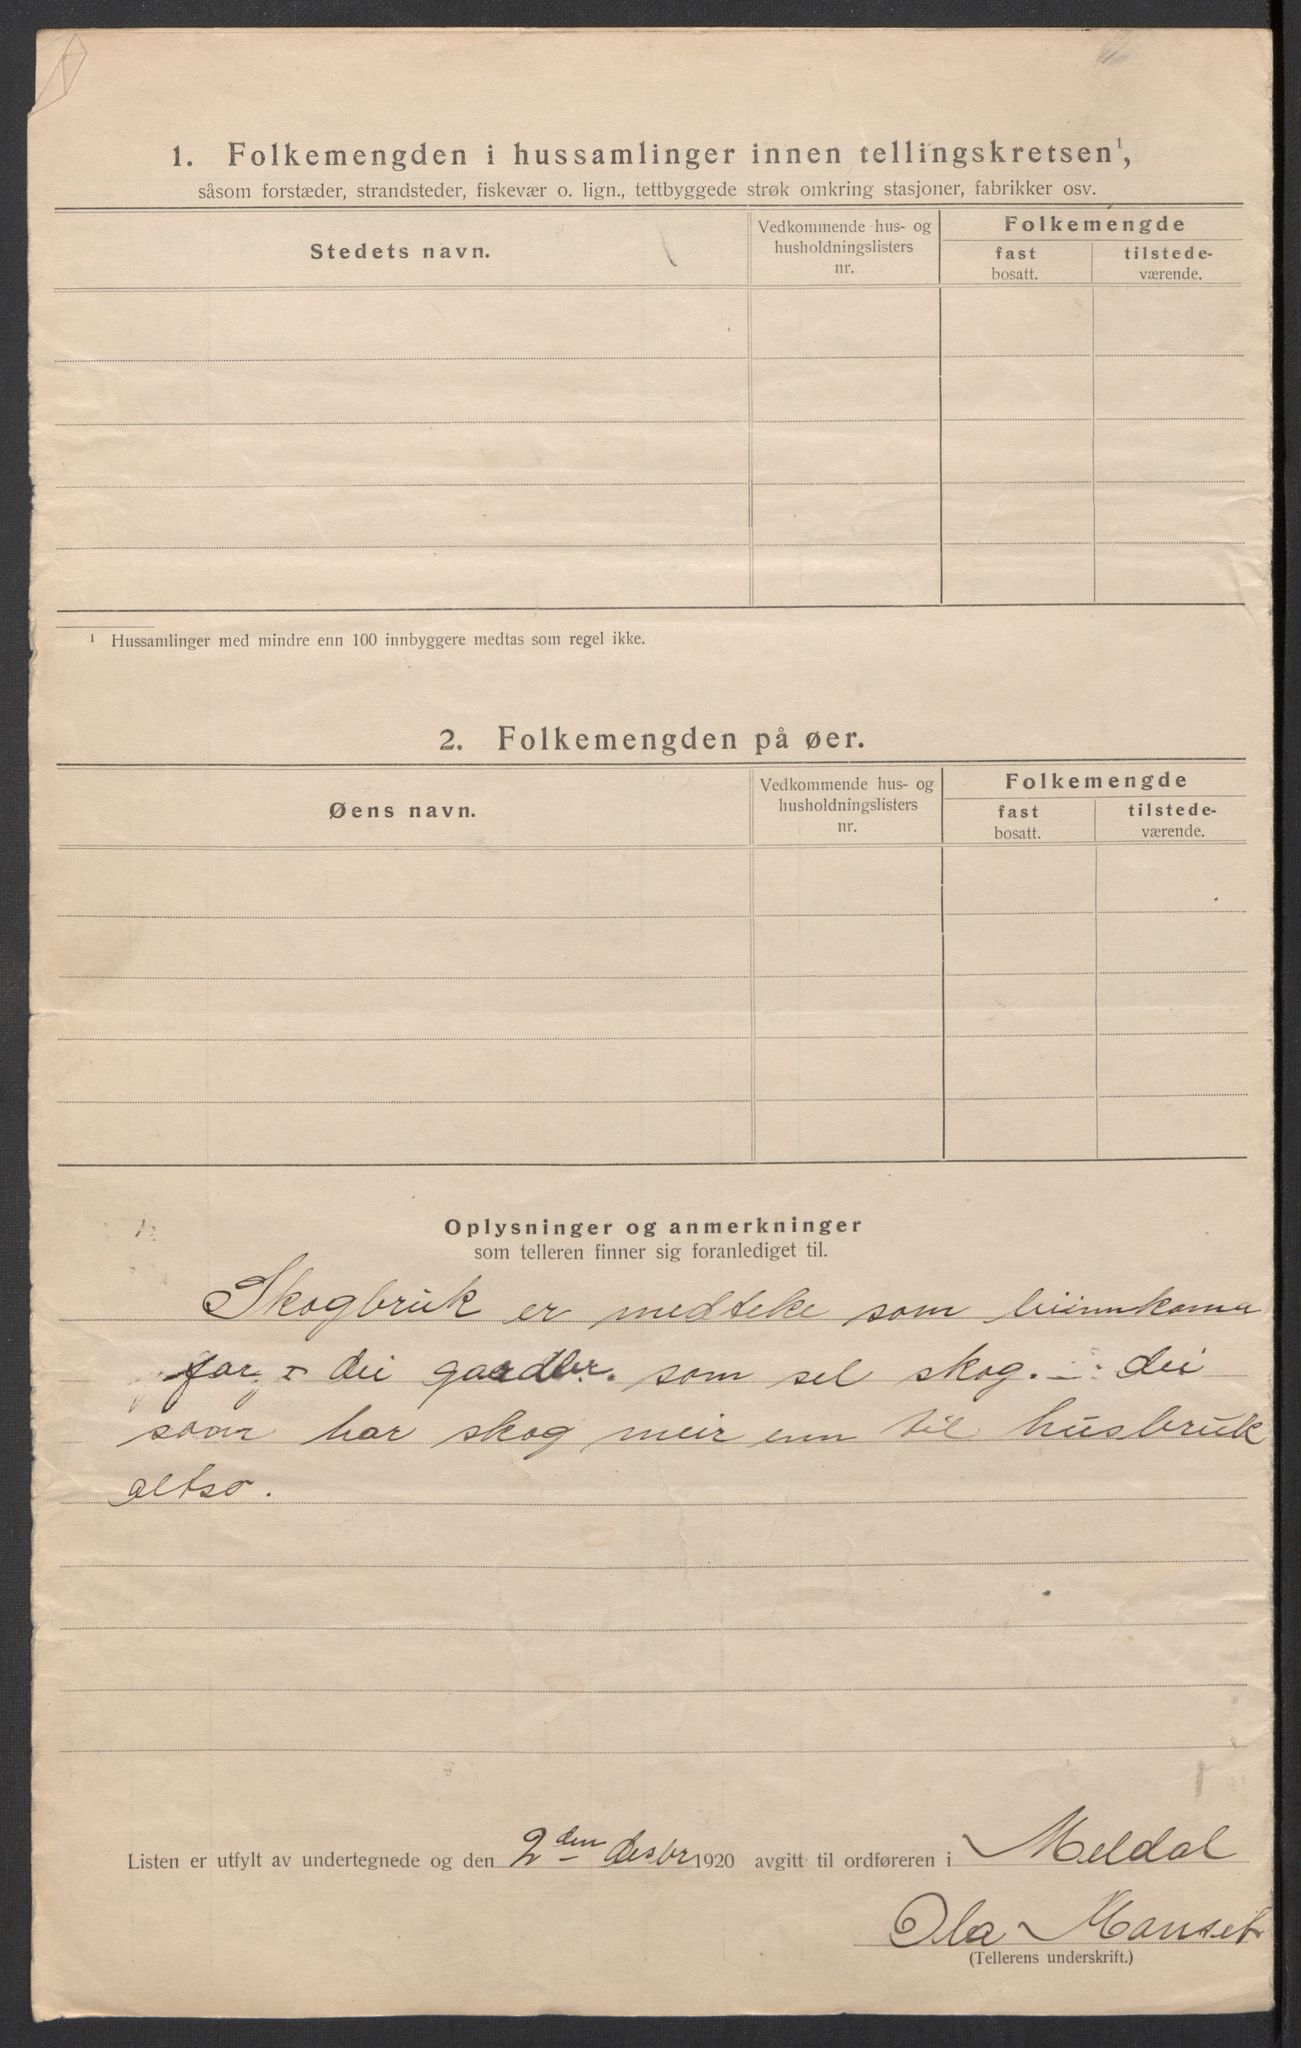 1. Folkemengden i hussamlinger innen tellingskretsen¹,
såsom forstæder, strandsteder, fiskevær o. lign., tettbyggede strøk omkring stasjoner, fabrikker osv.
Stedets navn.
Vedkommende hus- og
husholdningslisters
nr.
Folkemengde
fast
bosatt.
tilstede-
værende.
¹ Hussamlinger med mindre enn 100 innbyggere medtas som regel ikke.
2. Folkemengden på øer.
Øens navn.
Vedkommende hus- og
husholdningslisters
nr.
Folkemengde
fast
bosatt.
tilstede-
værende.
Oplysninger og anmerkninger
som telleren finner sig foranlediget til.
Skogbruk er medteke som
for dei gardbr. som sel skog. — : dei
som har skog meir enn til husbruk
altso.
Listen er utfylt av undertegnede og den 2den desbr 1920 avgitt til ordføreren i Meldal
Ola
(Tellerens underskrift.)